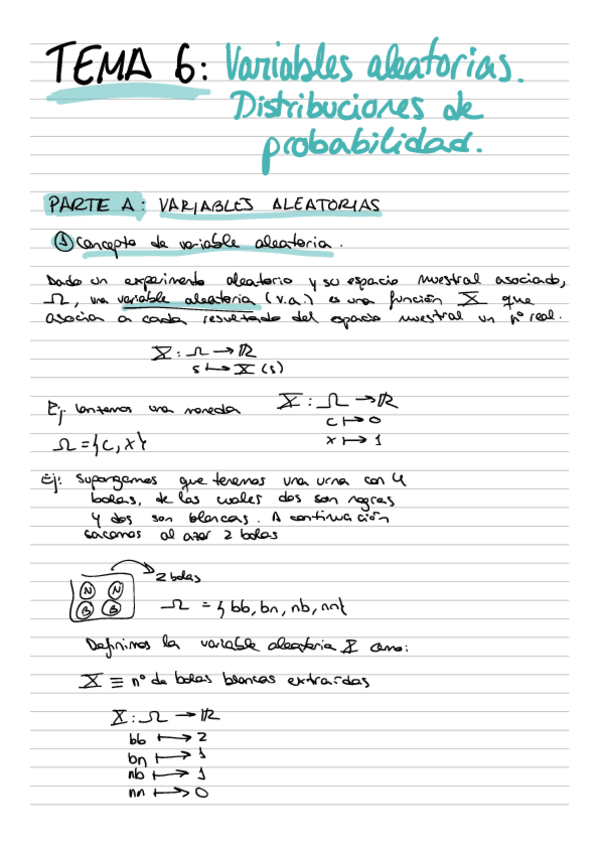 TEMA 6: Variables aleatorias.
Distribuciones de
probabilidad.
PARTE A: VARIABLES ALEATORIAS
① Concepto de variable aleatoria.
Dado un experimento aleatorio y su espacio muestral asociado,
Ω, una variable aleatoria (v.a.) es una función X que
asocia a cada resultado del espacio muestral un nº real.
X: Ω → ℝ
s ↦ X(s)
Ej: lanzamos una moneda
Ω = {c, x}
X: Ω → ℝ
c ↦ 0
x ↦ 1
Ej: Supongamos que tenemos una urna con 4
bolas, de las cuales dos son negras
y dos son blancas. A continuación
sacamos al azar 2 bolas
2 bolas
N N
B B
Ω = {bb, bn, nb, nn}
Definimos la variable aleatoria X como:
X ≡ nº de bolas blancas extraídas
X: Ω → ℝ
bb ↦ 2
bn ↦ 1
nb ↦ 1
nn ↦ 0